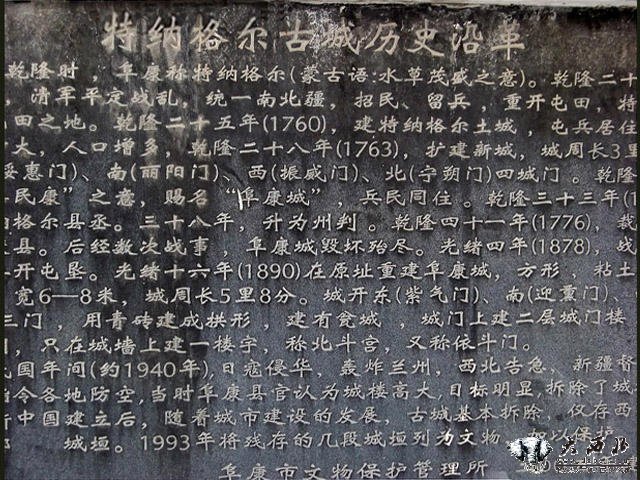 特纳格尔古城历史沿革
乾隆时，阜康称特纳格尔(蒙古语:水草茂盛之意)。乾隆二十
，清军平定战乱，统一南北疆，招民、留兵，重开屯田，特
田之地。乾隆二十五年(1760)，建特纳格尔土城，屯兵居住
大，人口增多，乾隆二十八年(1763)，扩建新城，城周长3里
绥惠门)、南(丽阳门)、西(振威门)、北(宁朔门)四城门。乾隆
民康”之意，赐名“阜康城”，兵民同住。乾隆三十三年(1
格尔县丞。三十八年，升为州判。乾隆四十一年(1776)，裁
县。后经数次战事，阜康城毁坏殆尽。光绪四年(1878)，战
开屯垦。光绪十六年(1890)在原址重建阜康城，方形，粘土
宽6—8米，城周长5里8分。城开东(紫气门)、南(迎薰门)、
三门，用青砖建成拱形，建有瓮城，城门上建二层城门楼
，只在城墙上建一楼宇，称北斗宫，又称依斗门。
国年间(约1940年)，日寇侵华，轰炸兰州，西北告急，新疆督
令各地防空，当时阜康县官认为城楼高大，目标明显，拆除了城
中国建立后，随着城市建设的发展，古城基本拆除，仅存西
城垣。1993年将残存的几段城垣列为文物，加以保护
阜康市文物保护管理所